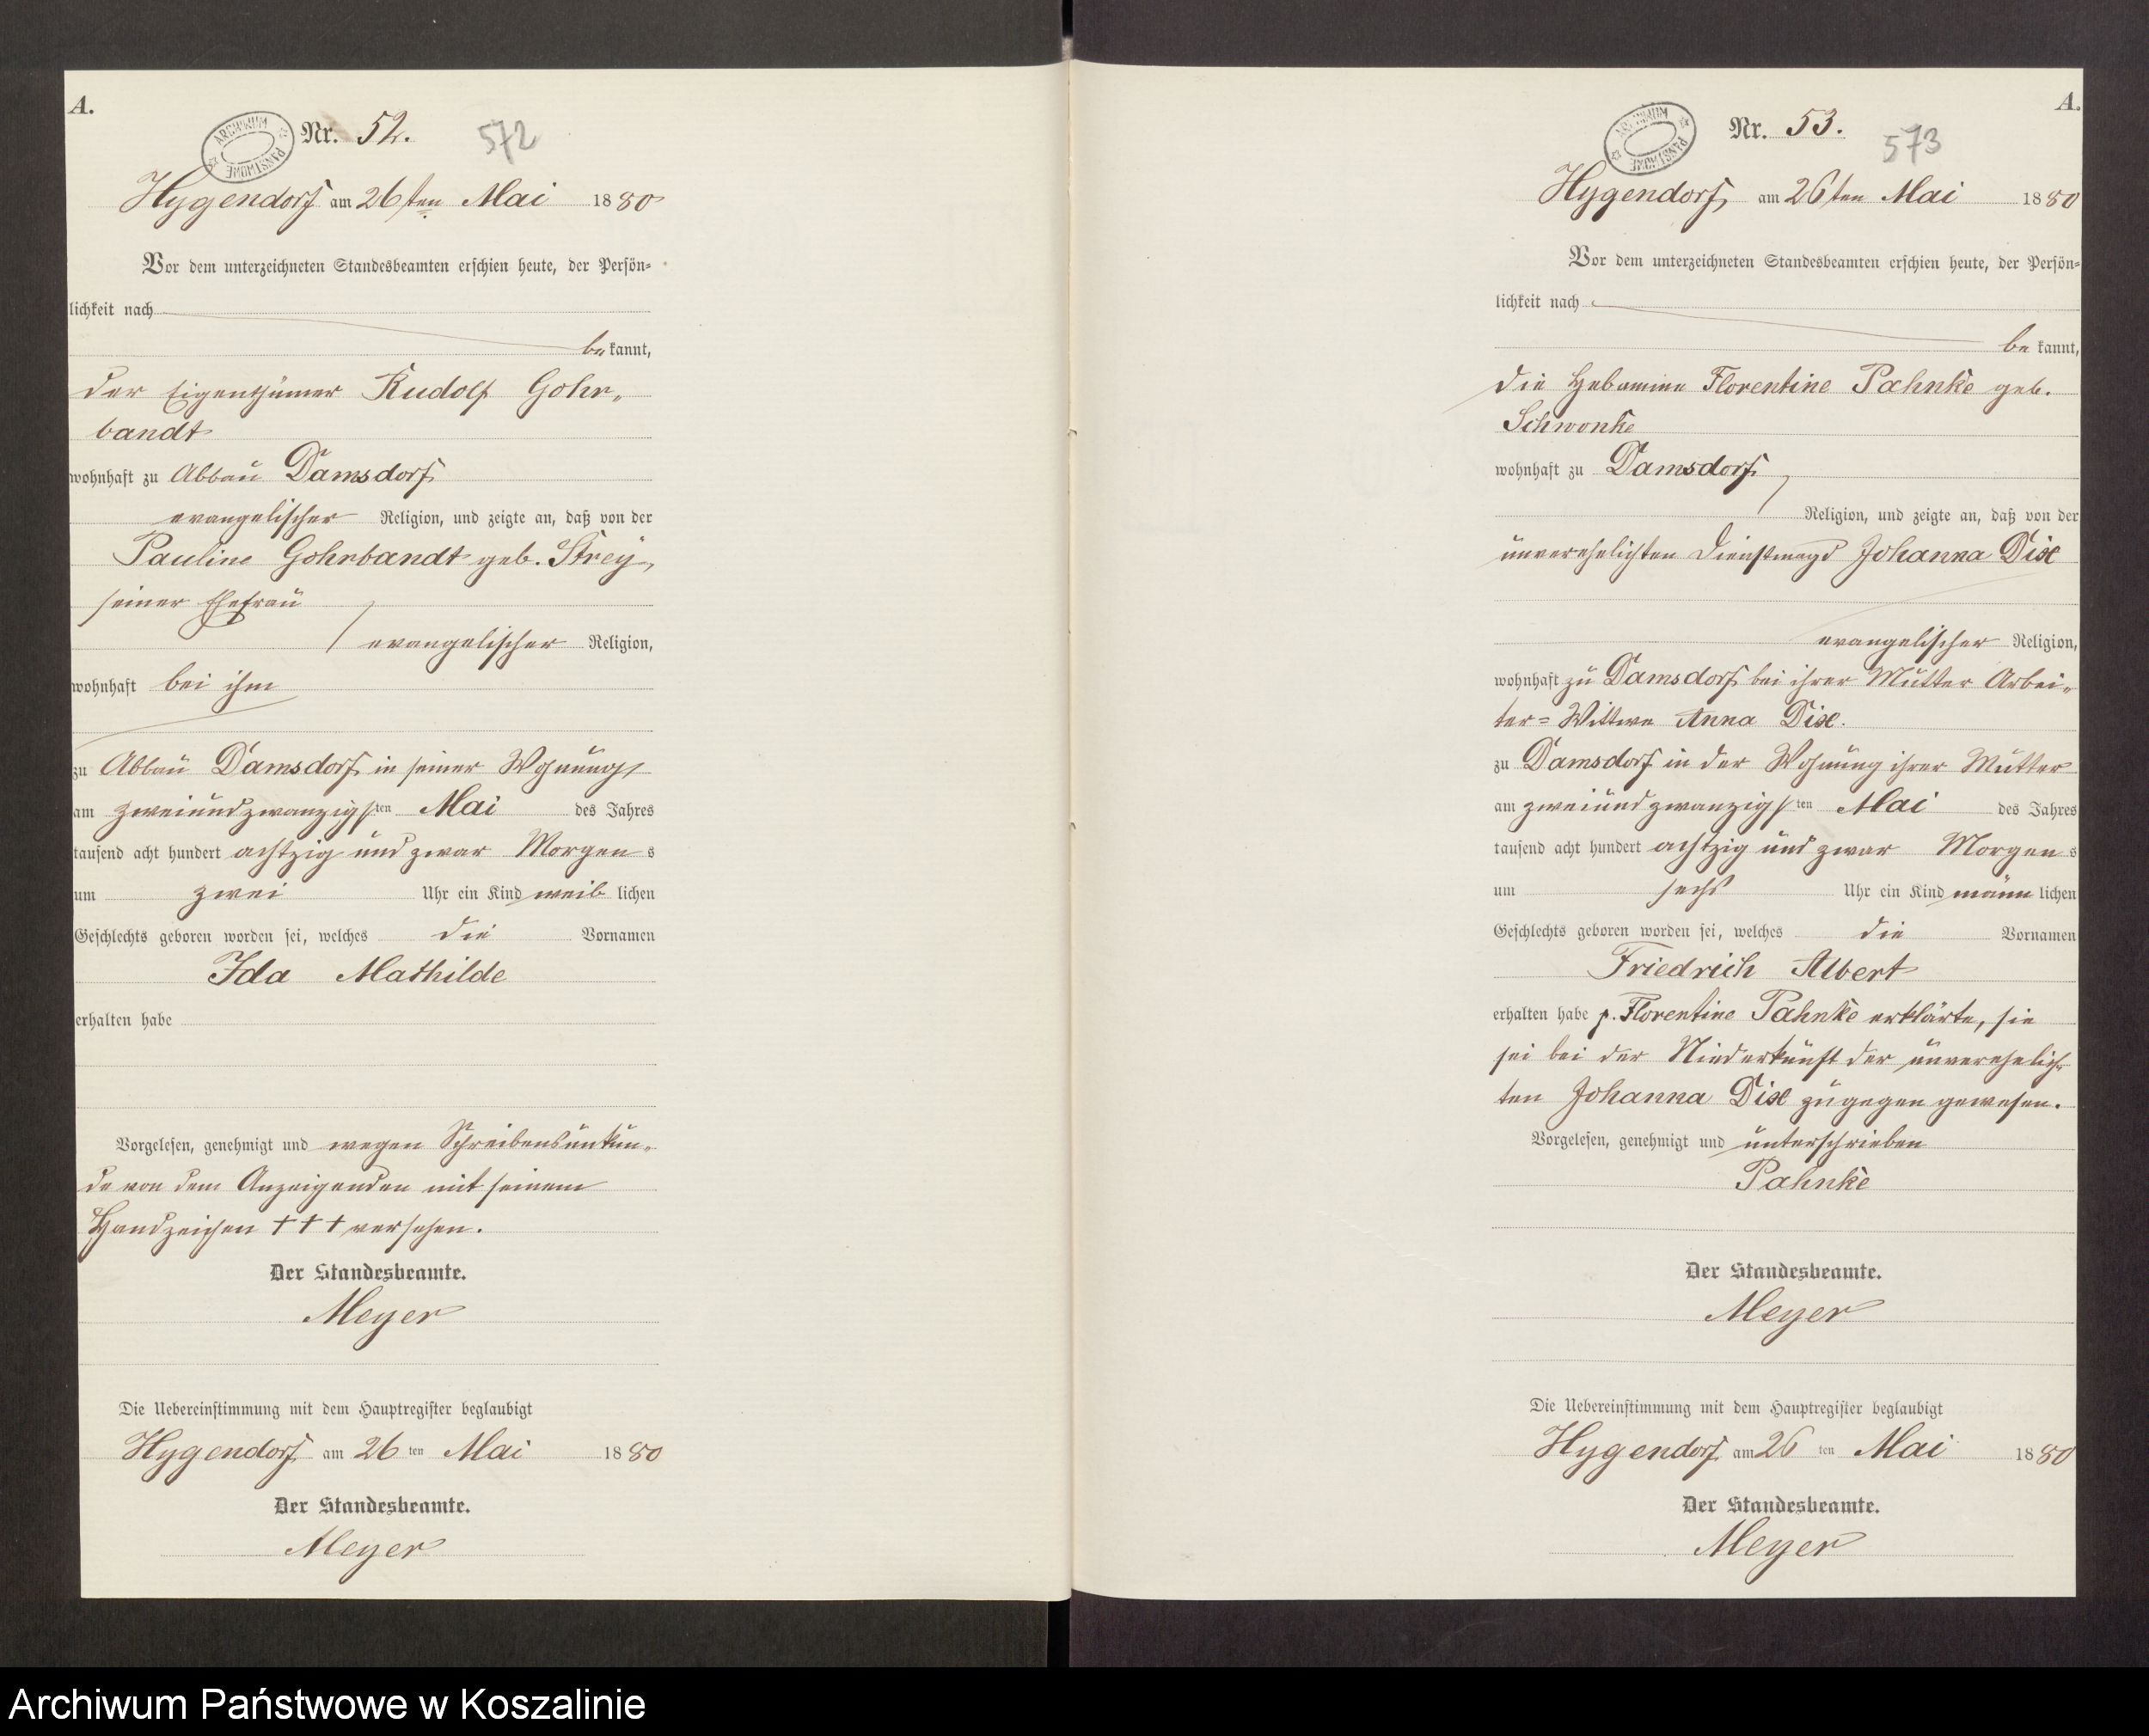 A.
ARCHIWUM PAŃSTWOWE
Nr. 52.
572
Hygendorf am 26sten Mai 1880
Vor dem unterzeichneten Standesbeamten erschien heute, der Persön-
lichkeit nach
bekannt,
der Eigenthümer Rudolf Gohr-
bandt
wohnhaft zu Abbau Damsdorf
evangelischer Religion, und zeigte an, daß von der
Pauline Gohrbandt geb. Strey,
seiner Ehefrau
evangelischer Religion,
wohnhaft bei ihm
zu Abbau Damsdorf in seiner Wohnung
am zweiundzwanzigsten Mai des Jahres
tausend acht hundert achtzig und zwar Morgens
um zwei Uhr ein Kind weiblichen
Geschlechts geboren worden sei, welches die Vornamen
Ida Mathilde
erhalten habe
Vorgelesen, genehmigt und wegen Schreibensunkun-
de von dem Anzeigenden mit seinem
Handzeichen +++ versehen.
Der Standesbeamte.
Meyer
Die Uebereinstimmung mit dem Hauptregister beglaubigt
Hygendorf am 26ten Mai 1880
Der Standesbeamte.
Meyer
A.
ARCHIWUM PAŃSTWOWE
Nr. 53.
573
Hygendorf, am 26sten Mai 1880
Vor dem unterzeichneten Standesbeamten erschien heute, der Persön-
lichkeit nach
bekannt,
die Hebamme Florentine Pahnke geb.
Schwonke
wohnhaft zu Damsdorf
Religion, und zeigte an, daß von der
unverehelichten Dienstmagd Johanna Dix
evangelischer Religion,
wohnhaft zu Damsdorf bei ihrer Mutter Arbei-
ter-Wittwe Anna Dix.
zu Damsdorf in der Wohnung ihrer Mutter
am zweiundzwanzigsten Mai des Jahres
tausend acht hundert achtzig und zwar Morgens
um sechs Uhr ein Kind männlichen
Geschlechts geboren worden sei, welches die Vornamen
Friedrich Albert
erhalten habe p. Florentine Pahnke erklärte, sie
sei bei der Niederkunft der unverehelich-
ten Johanna Dix zugegen gewesen.
Vorgelesen, genehmigt und unterschrieben
Pahnke
Der Standesbeamte.
Meyer
Die Uebereinstimmung mit dem Hauptregister beglaubigt
Hygendorf am 26ten Mai 1880
Der Standesbeamte.
Meyer
Archiwum Państwowe w Koszalinie